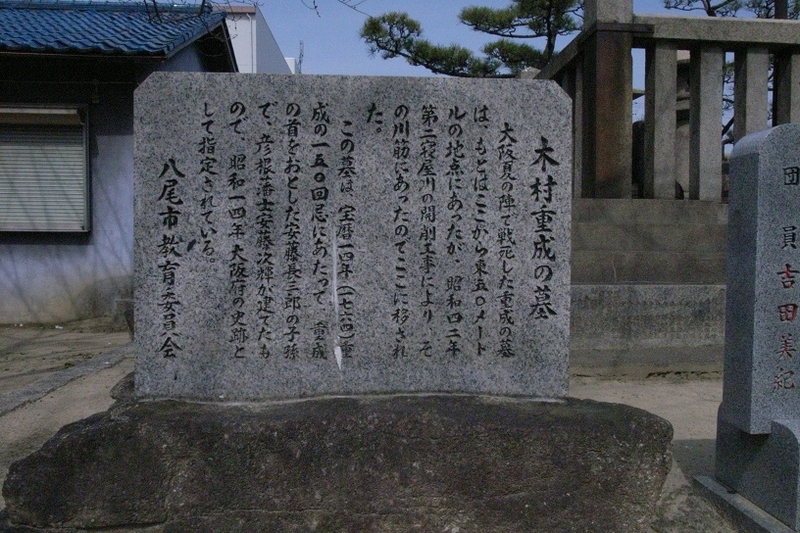 木村重成の墓
大阪夏の陣で戦死した重成の墓
は、もとはここから東五〇メート
ルの地点にあったが、昭和四二年
第二寝屋川の開削工事により、そ
の川筋にあったのでここに移され
た。
この墓は、宝暦一四年（一七六四）重
成の一五〇回忌にあたって、重成
の首をおとした安藤長三郎の子孫
で、彦根藩士安藤次輝が建てたも
ので、昭和一四年、大阪府の史跡と
して指定されている。
八尾市教育委員会
団員吉田美紀